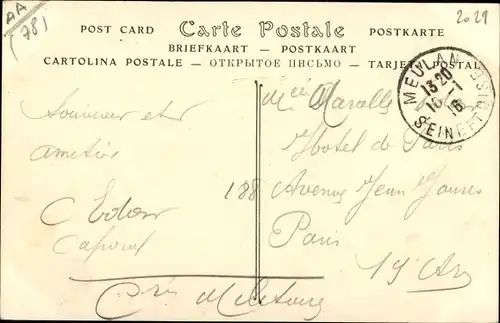 AA
(78)
2029
POST CARD Carte Postale POSTKARTE
BRIEFKAART — POSTKAART
CARTOLINA POSTALE — ОТКРЫТОЕ ПИСЬМО — TARJETA POSTAL
MEULAN
13 20
16 - 1
16
SEINE ET OISE
Souvenir et
Hotel de Paris
188 Avenue Jean Jaures
Paris
19e Ar
Caporal